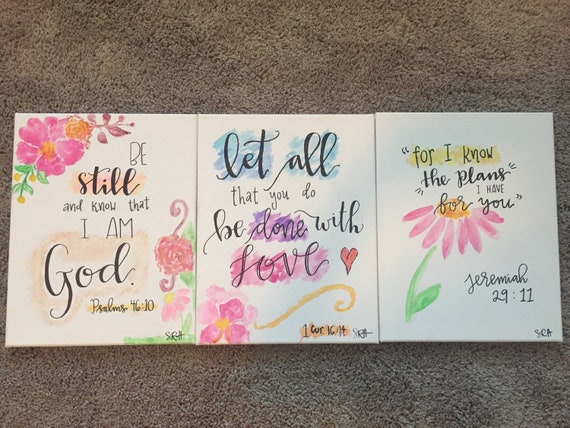 BE
still
and know that
I AM
God.
Psalms 46:10
SRH
let all
that you do
be done with
LOVE
1 Cor. 16:14
SRH
"for I know
the plans
I HAVE
for you"
Jeremiah
29:11
SRH